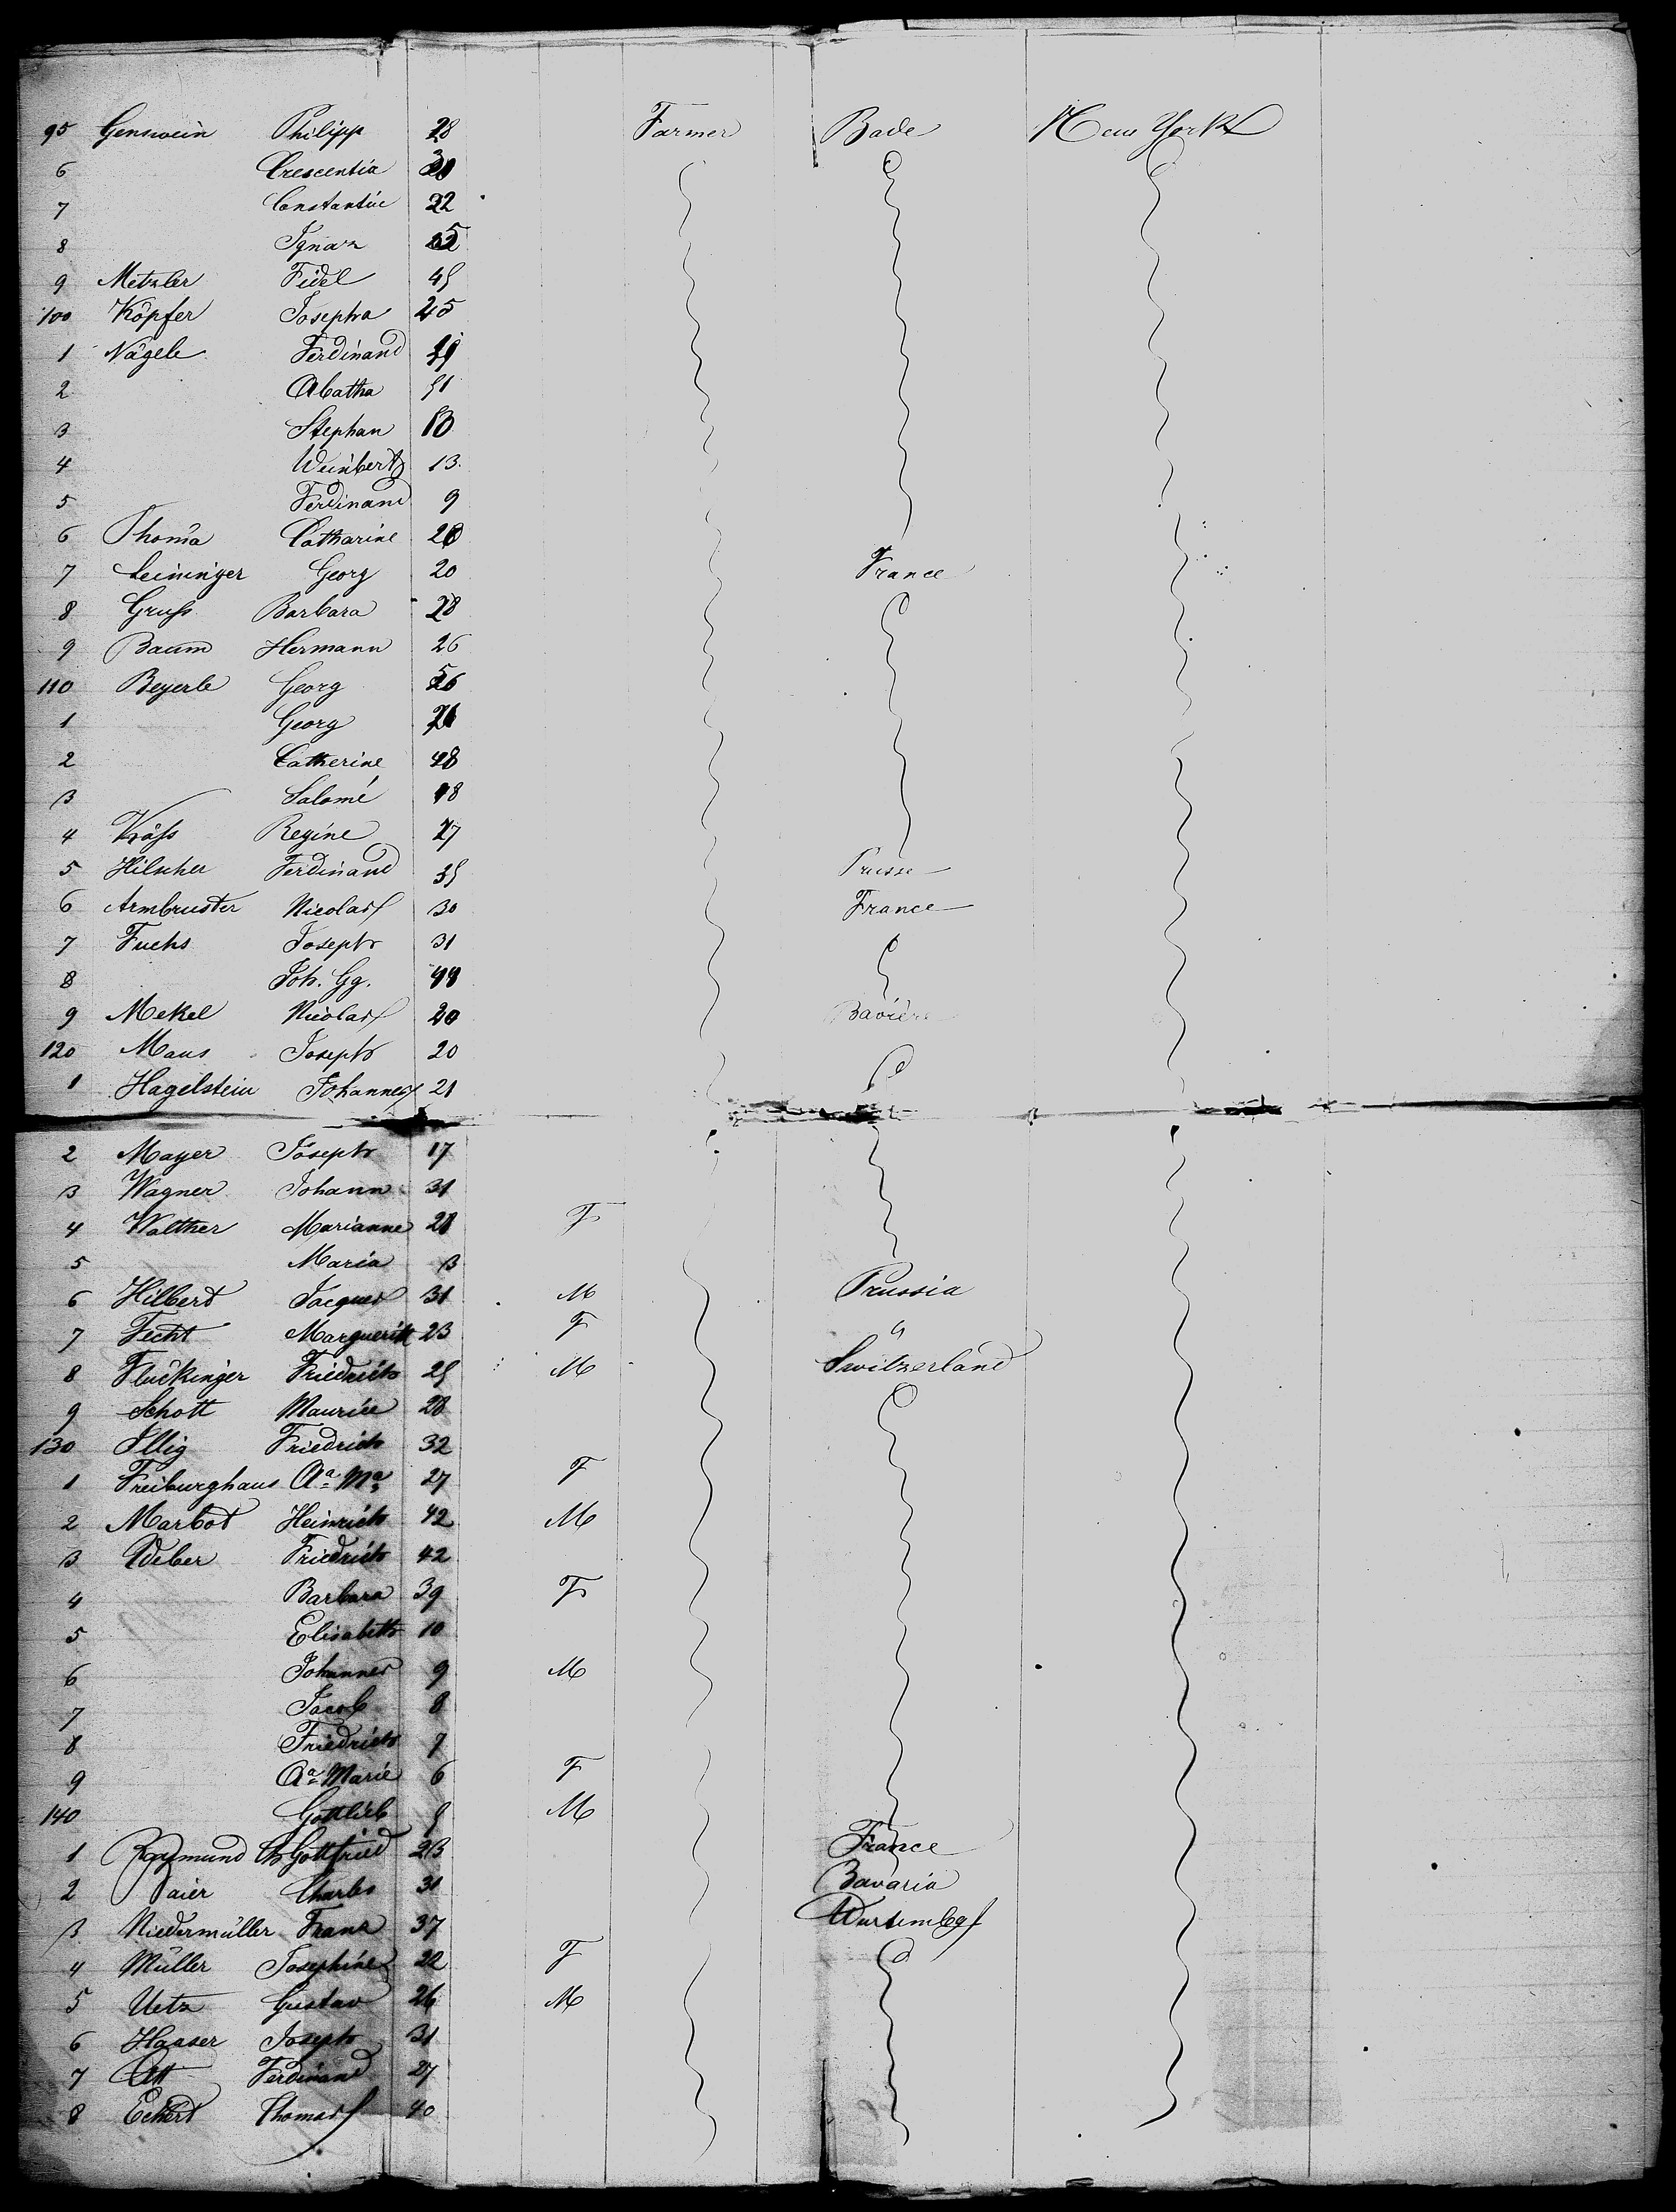 95 Genswein Philipp 28 Farmer Bade New York
6 Crescentia
7 Constantin 22
8 Ignaz
9 Metzler Fidel 45
100 Köpfer Josepha 25
1 Nägele Ferdinand
2 Abatha 51
3 Stephan
4 Weinbert 13
5 Ferdinand 9
6 Thoma Catharine
7 Leininger Georg 20 France
8 Gruß Barbara 28
9 Baum Hermann 26
110 Beyerle Georg
1 Georg
2 Catherine 48
3 Salomé 18
4 Kräß Regine 27
5 Hilscher Ferdinand 35 Prusse
6 Armbruster Nicolas 30 France
7 Fuchs Joseph 31
8 Joh. Gg. 44
9 Mekel Nicolas 20 Bavière
120 Maus Joseph 20
1 Hagelstein Johannes 21
2 Mayer Joseph 17
3 Wagner Johann 31
4 Walther Marianne F
5 Maria 3
6 Hilbert Jacques 31 M Prussia
7 Fecht Marguerite 23 F "
8 Flückinger Friedrich 25 M Switzerland
9 Schott Maurice 28
130 Illig Friedrich 32
1 Freiburghaus Aa Ma 27 F
2 Marbot Heinrich 42 M
3 Weber Friedrich 42
4 Barbara 39 F
5 Elisabeth 10
6 Johannes 9 M
7 Jacob 8
8 Friedrich 7
9 Aa Marie 6 F
140 Gottlieb 5 M
1 Raymund Ch Gottfried 23 France
2 Paier Charles 31 Bavaria
3 Niedermüller Franz 37 Wurtembg
4 Müller Josephine 22 F
5 Uetz Gustav 26 M
6 Hauser Joseph 31
7 Ott Ferdinand 27
8 Eckert Thomas 40